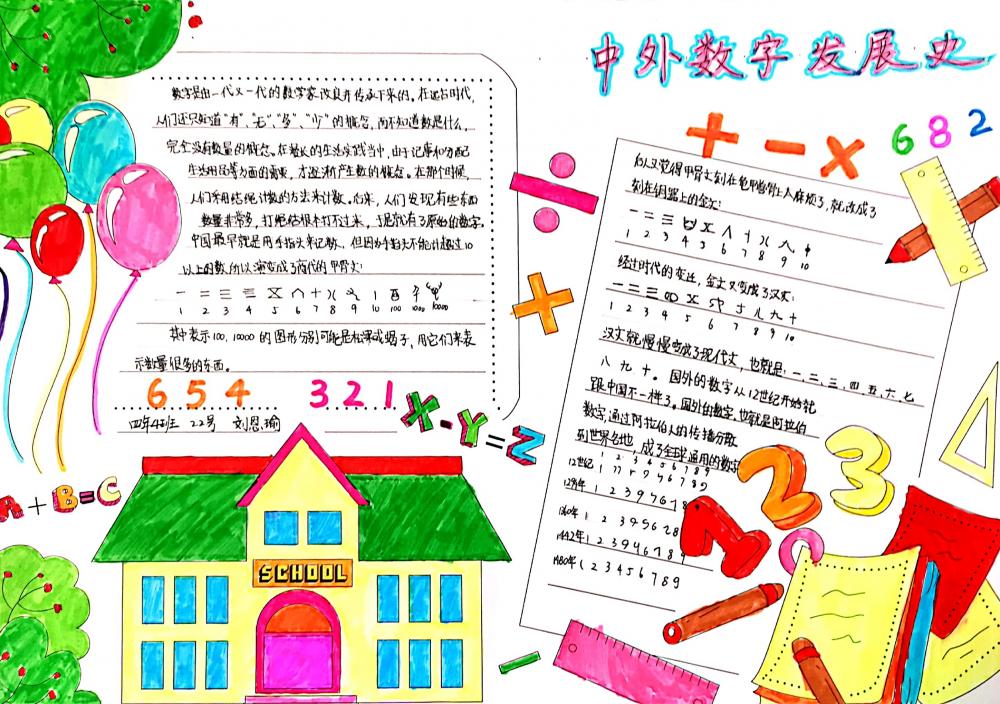 中外数字发展史
数字是由一代又一代的数学家改良并传承下来的。在远古时代，
人们还只知道"有"、"无"、"多"、"少"的概念，而不知道数是什么，
完全没有数量的概念。在漫长的生活实践当中，由于记事和分配
生活用品等方面的需要，才逐渐产生数的概念。在那个时候，
人们采用结绳计数的方法来计数。后来，人们发现有些东西
数量非常多，打绳结根本打不过来，于是就有了原始的数字。
中国最早就是用手指头来记数，但因为手指头不能计超过10
以上的数，所以演变成了商代的甲骨文：
1 2 3 4 5 6 7 8 9 10 100 1000 10000
其中表示100，10000的图形分别可能是松果或蝎子，用它们来表
示数量很多的东西。
6 5 4 3 2 1
四年4班 22号 刘恩瑜
X-Y=Z
A+B=C
SCHOOL
+ - × 6 8 2
÷
+
后又觉得甲骨文刻在龟甲兽骨上太麻烦了，就改成了
刻在钟器上的金文：
1 2 3 4 5 6 7 8 9 10
经过时代的变迁，金文又变成了汉文：
1 2 3 4 5 6 7 8 9 10
汉文就慢慢变成了现代文，也就是：一、二、三、四、五、六、七
八 九 十。国外的数字从12世纪开始就
跟中国不一样了。国外的数字，也就是阿拉伯
数字，通过阿拉伯人的传播分散
到世界各地，成了全球通用的数字
1 2 3 4 5 6 7 8 9
12世纪
1442年 1 2 3 4 6 7 8 9
1480年 1 2 3 4 5 6 7 8 9
1 2 3
0